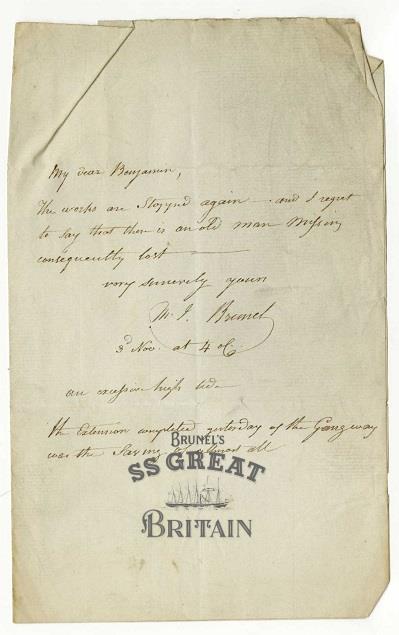 My dear Benjamin,
The works are Stopped again — and I regret
to say that there is an old man Missing
consequently lost —
very sincerely yours
M. I. Brunel
3d Nov. at 4 oC.
an excessive high tide
the Extension completed yesterday of the Gangway
was the Saving of almost all
BRUNEL'S
SS GREAT
BRITAIN